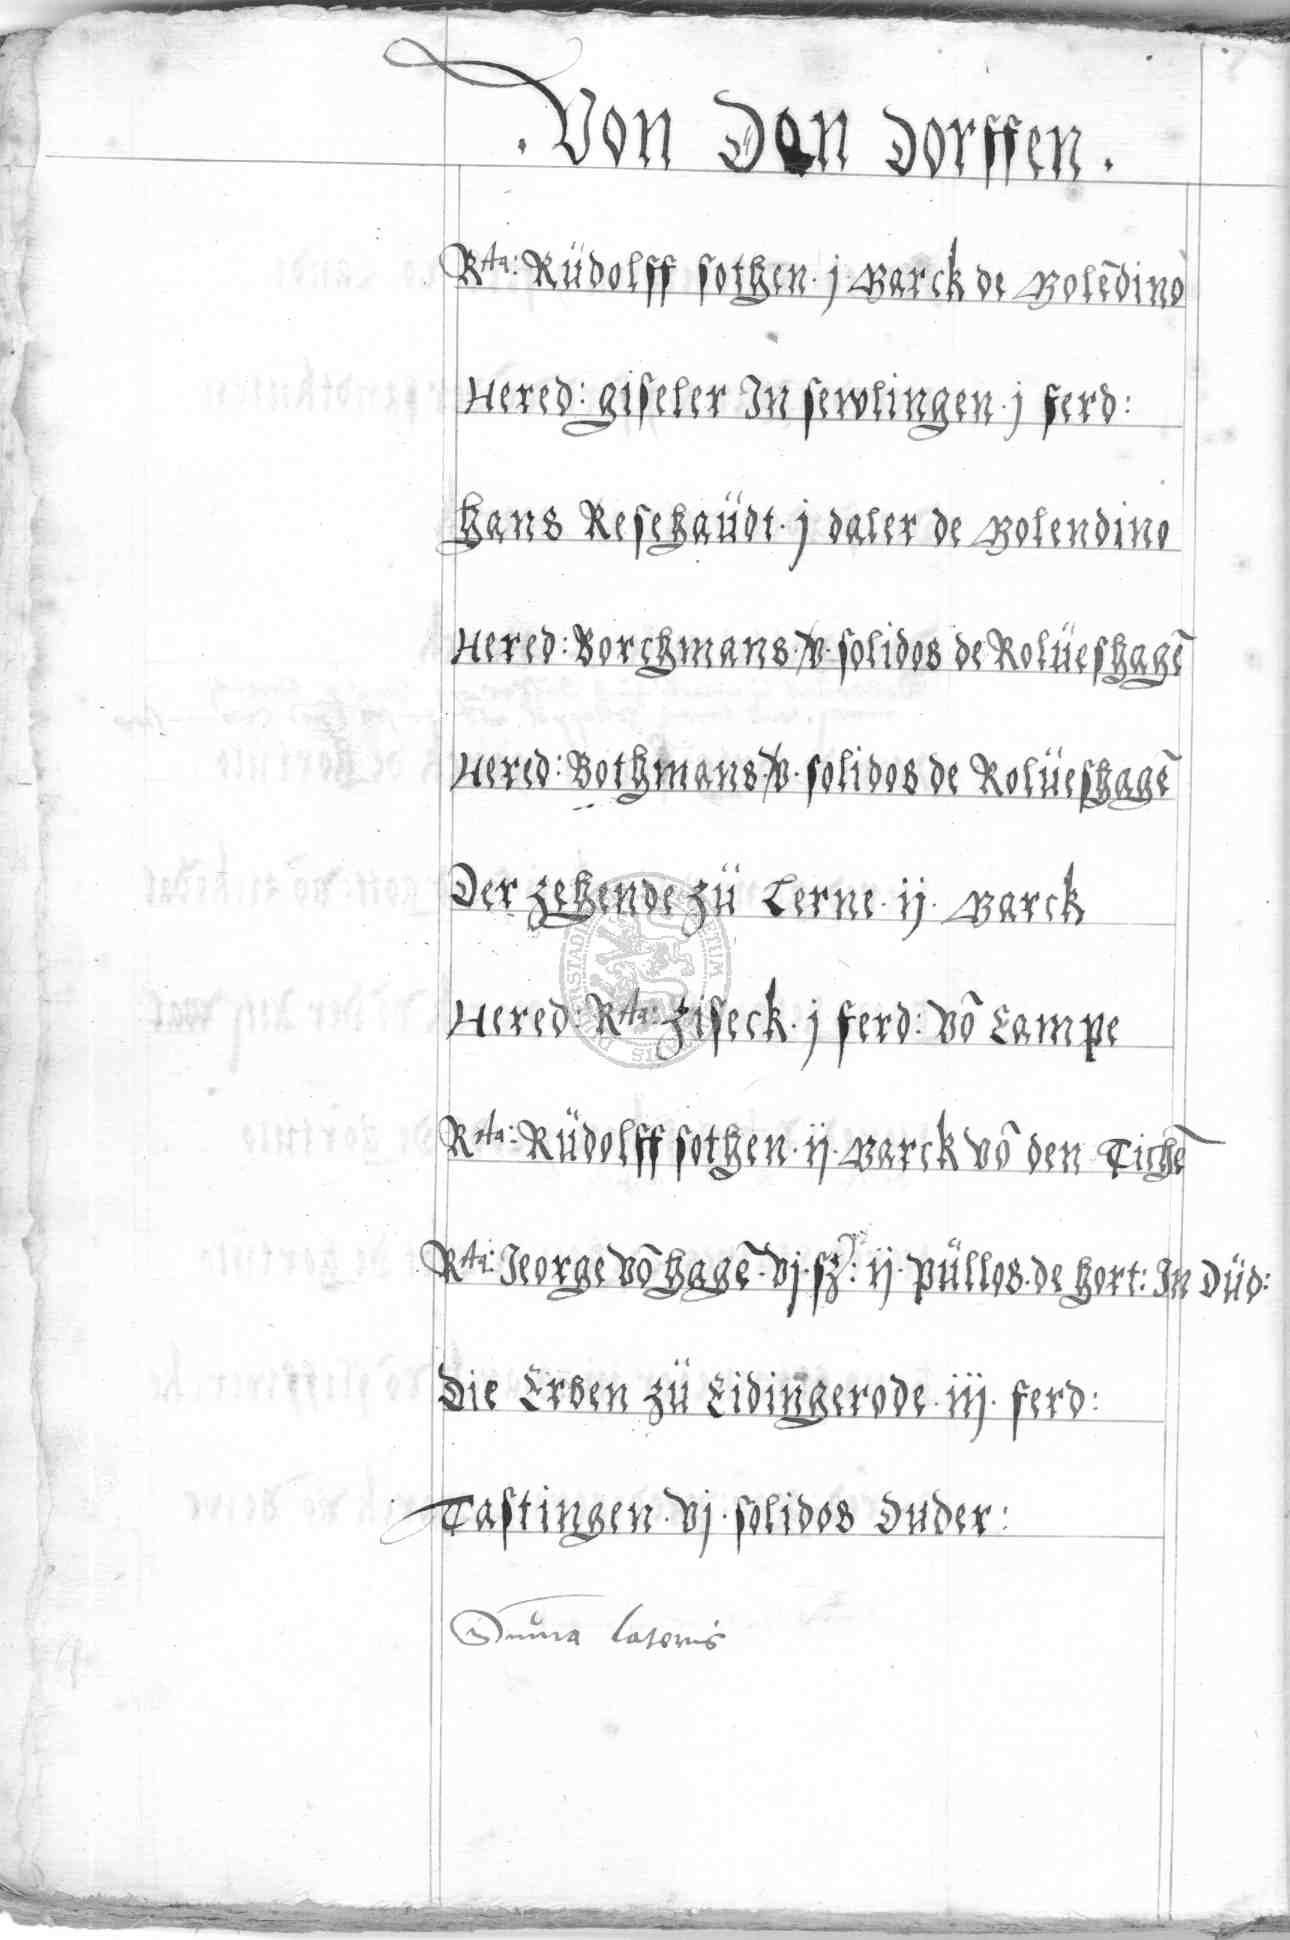 . Von Den Dorffen .
Rta: Rüdolff sothen · j · Marck de Molēdino
Hered: giseler In sewlingen · j ferd:
Hans Resehaüdt · j daler de Molendino
Hered: Borchmans · v · solidos de Rolüeshagē
Hered: Bothmans · v · solidos de Rolüeshagē
Der zehende zü Lerne · ij · Marck
Hered: Rta: Ziseck · j ferd: vō Lampe
Rta: Rüdolff sothen · ij · Marck vō den Tichē
Rta: Jeorge vō hagē · vj · sz: ij · püllos · de hort: In Düd:
Die Erben zü Eidingerode · iij · ferd:
Tastingen · vj · solidos Duder:
Suma lateris